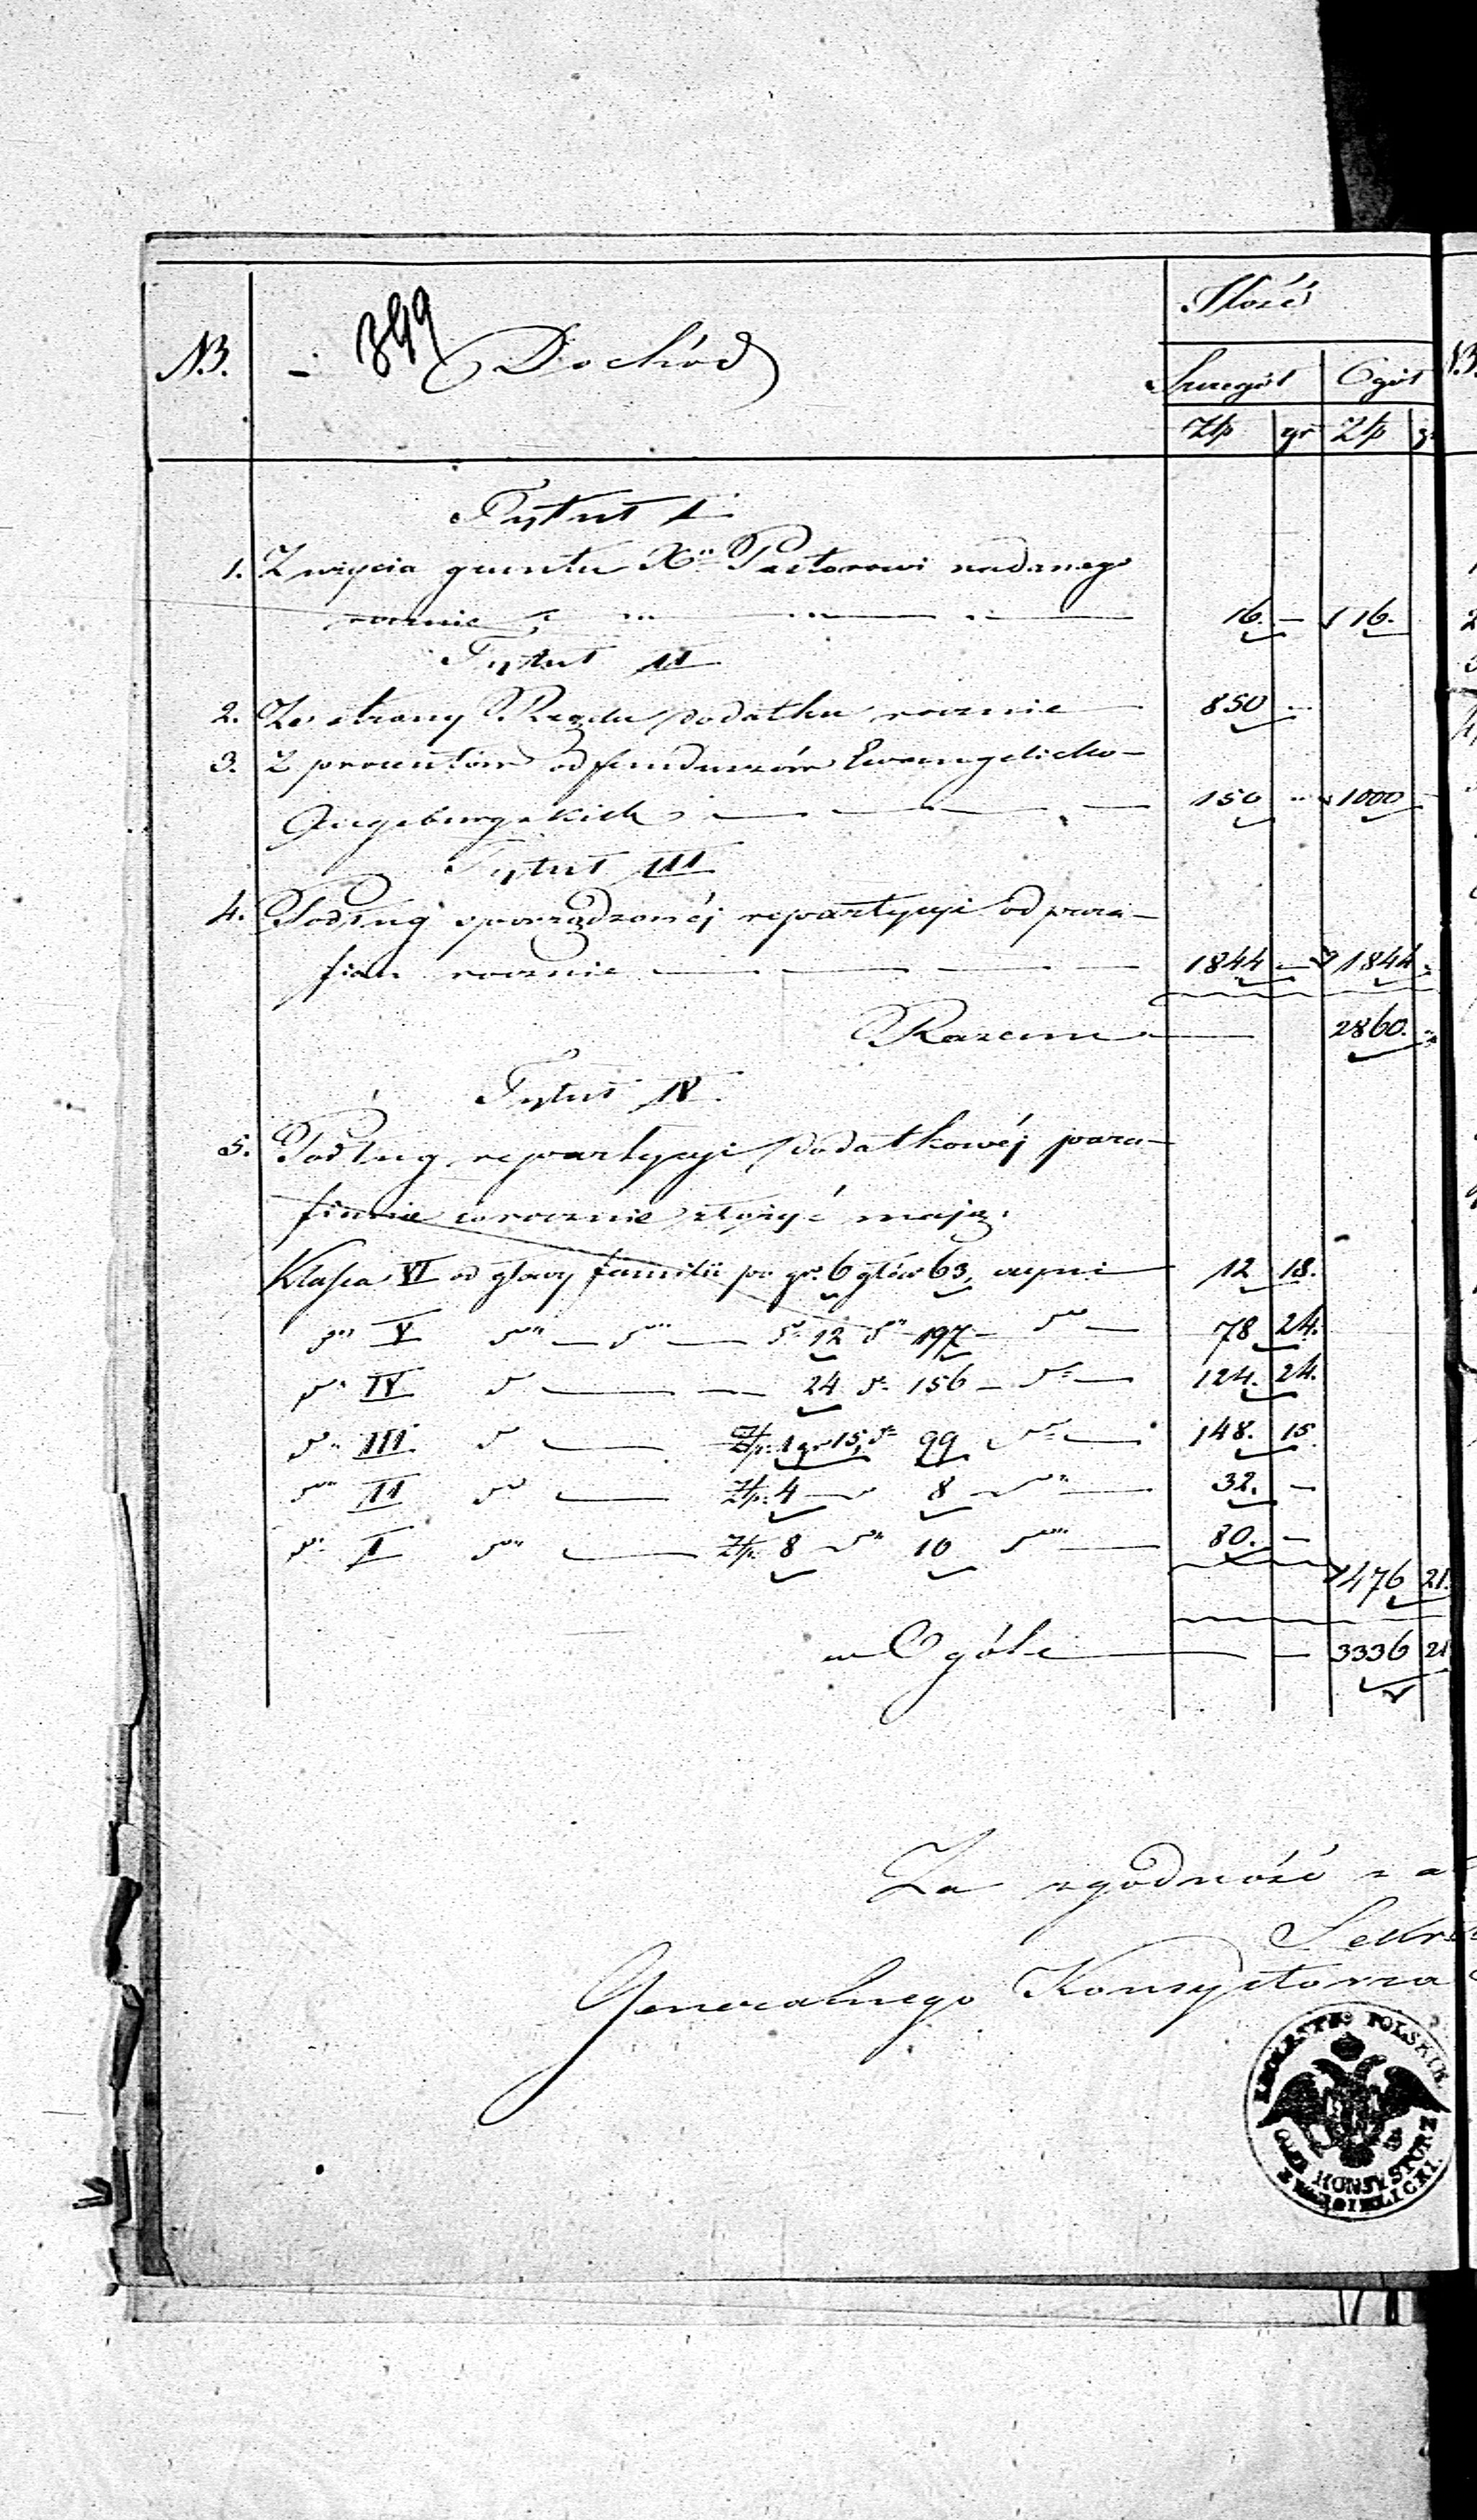 349
Ilość
NB. Dochód
Szczegół Ogół
Złp gr Złp g
Tytuł I
1. Z użycia gruntu Xu Pastorowi nadanego
rocznie 16. — 16.
Tytuł II
2. Ze strony Rządu dodatku rocznie 850
3. Z procentów od funduszów Ewangelicko-
Augsburgskich 150 1000
Tytuł III
4. Podług sporządzonéj repartycyi od para-
fian rocznie 1844 — 1844
Razem 2860.
Tytuł IV
5. Podług repartycyi dodatkowéj para-
fianie corocznie złożyć mają.
Klassa VI od głowy familii po gr. 6 głów 63, czyni 12 18.
V 12 197 78 24.
IV 24 156 124. 24.
III Złp. 1 gr 15, 99 148. 15
II Złp. 4 8 32. —
I Złp. 8 10 80. —
476 21.
w Ogóle — 3336 21
Za zgodność z
Sekr
Generalnego Konsystorza
KRÓLESTWO POLSKIE.
KONSYSTORZ